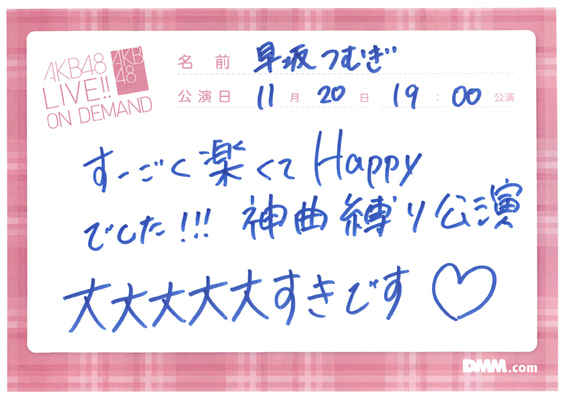 AKB48
LIVE!!
ON DEMAND
AKB
48
名前 早坂つむぎ
公演日 11月20日 19:00公演
すーごく楽くてHappy
でした!!! 神曲縛り公演
大大大大大すきです♡
DMM.com